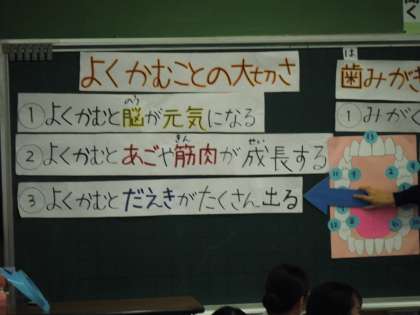 よくかむことの大切さ
①よくかむと脳が元気になる
のう
②よくかむとあごや筋肉が成長する
きん せい
③よくかむとだえきがたくさん出る
は
歯みがき
①みがく